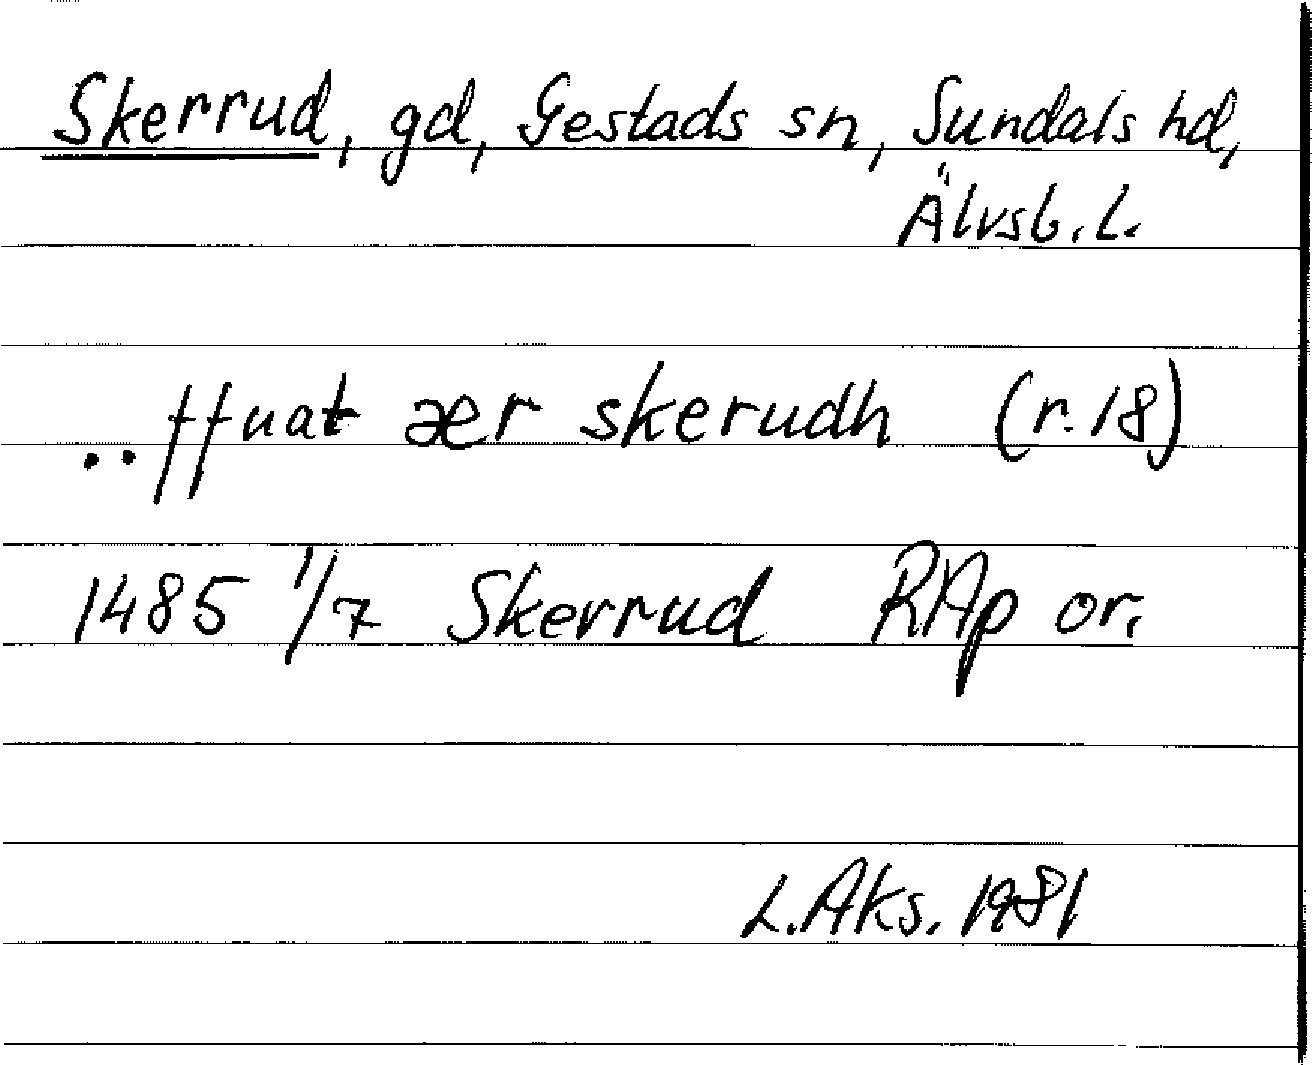 Skerrud, gd, Gestads sn, Sundals hd,
Älvsb. l.
..ffuat ær skerudh (r. 18)
1485 1/7 Skerrud RAp or.
L. Aks. 1981